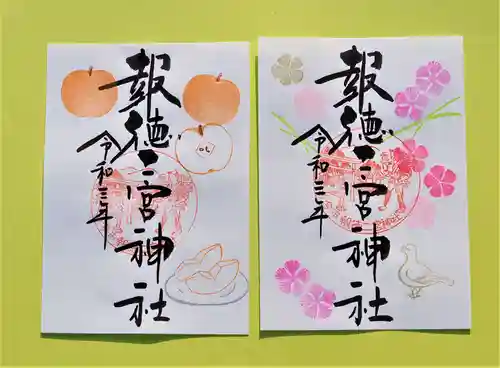 報徳二宮神社
令和三年
報徳二宮神社
令和三年